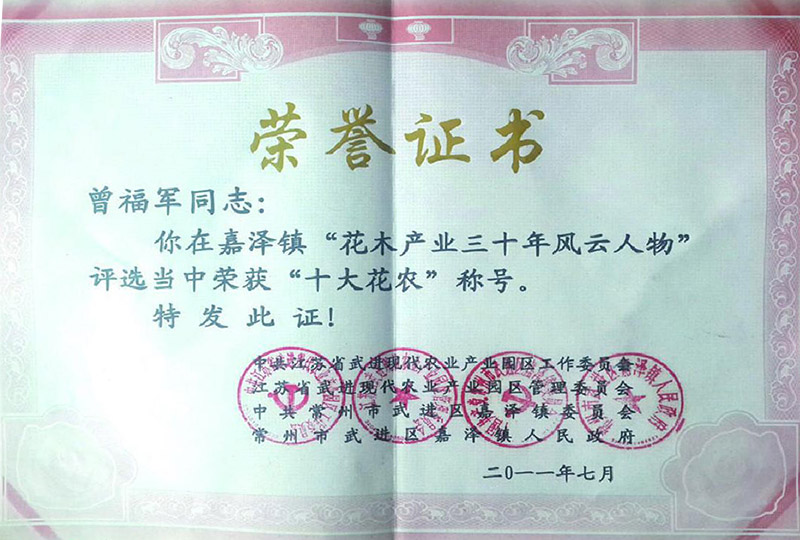 荣誉证书
曾福军同志：
你在嘉泽镇“花木产业三十年风云人物”
评选当中荣获“十大花农”称号。
特发此证！
中共江苏省武进现代农业产业园区工作委员会
江苏省武进现代农业产业园区管理委员会
中共常州市武进区嘉泽镇委员会
常州市武进区嘉泽镇人民政府
二0一一年七月